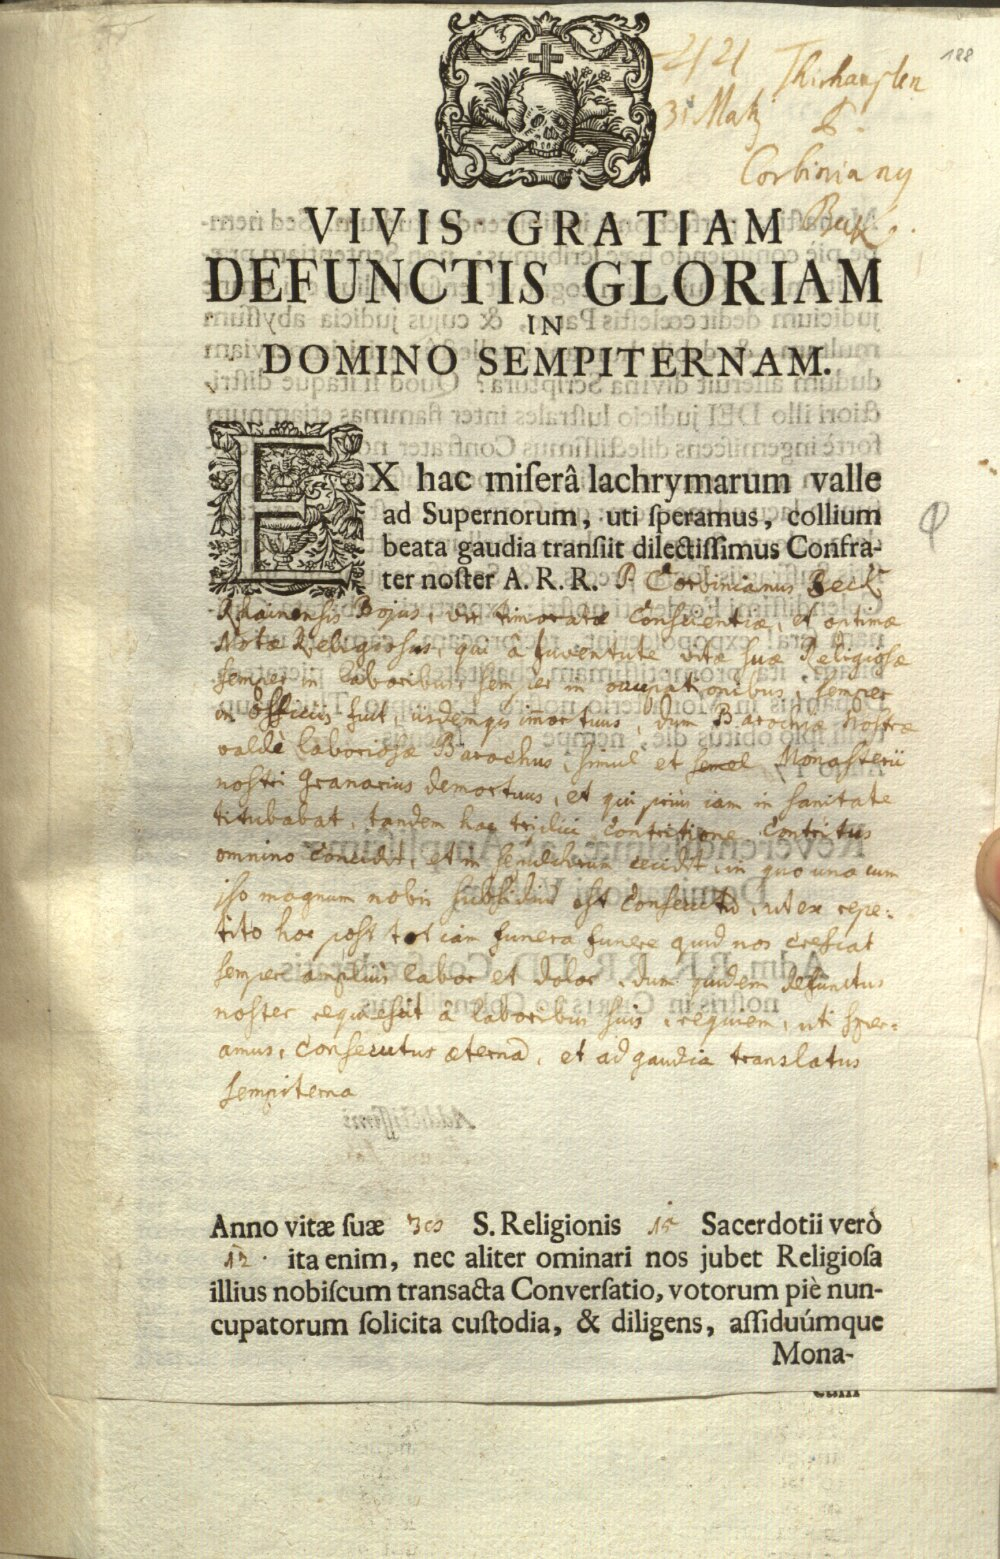 188
Thirhaupten
31 Martij
P.
Corbinianus
Beck
VIVIS GRATIAM
DEFUNCTIS GLORIAM
IN
DOMINO SEMPITERNAM.
EX hac miserâ lachrymarum valle
ad Supernorum, uti speramus, collium
beata gaudia transiit dilectissimus Confra-
ter noster A. R. R. P. Corbinianus Beck
Bojus, vir timoratæ Conscientiæ, et optimæ
Notæ Religiosus, qui â Juventute vitæ suæ Religiosæ
semper in laboribus, semper in occupationibus, semper
in officiis fuit, iisdemqȝ imortuus, dum Parochiæ Nostræ
valdè laboriosæ Parochus, simul et semel Monasterii
nostri Granarius demortuus, et qui prius iam in sanitate
titubabat, tandem hac contritione contritus
omnino concidit, et in sepulchrum cecidit, in quo una cum
ipso magnum nobis subsidiũ est ut ex repe-
tito hoc post tot iam funera funere quid nos crescat
semper amplius labor et dolor, dum quidem defunctus
noster requiescit â laboribus suis, requiem, uti sper-
amus, consecutus æternã, et ad gaudia translatus
sempiterna
Anno vitæ suæ S. Religionis 15 Sacerdotii verò
12. ita enim, nec aliter ominari nos jubet Religiosa
illius nobiscum transacta Conversatio, votorum piè nun-
cupatorum solicita custodia, & diligens, assiduúmque
Mona-